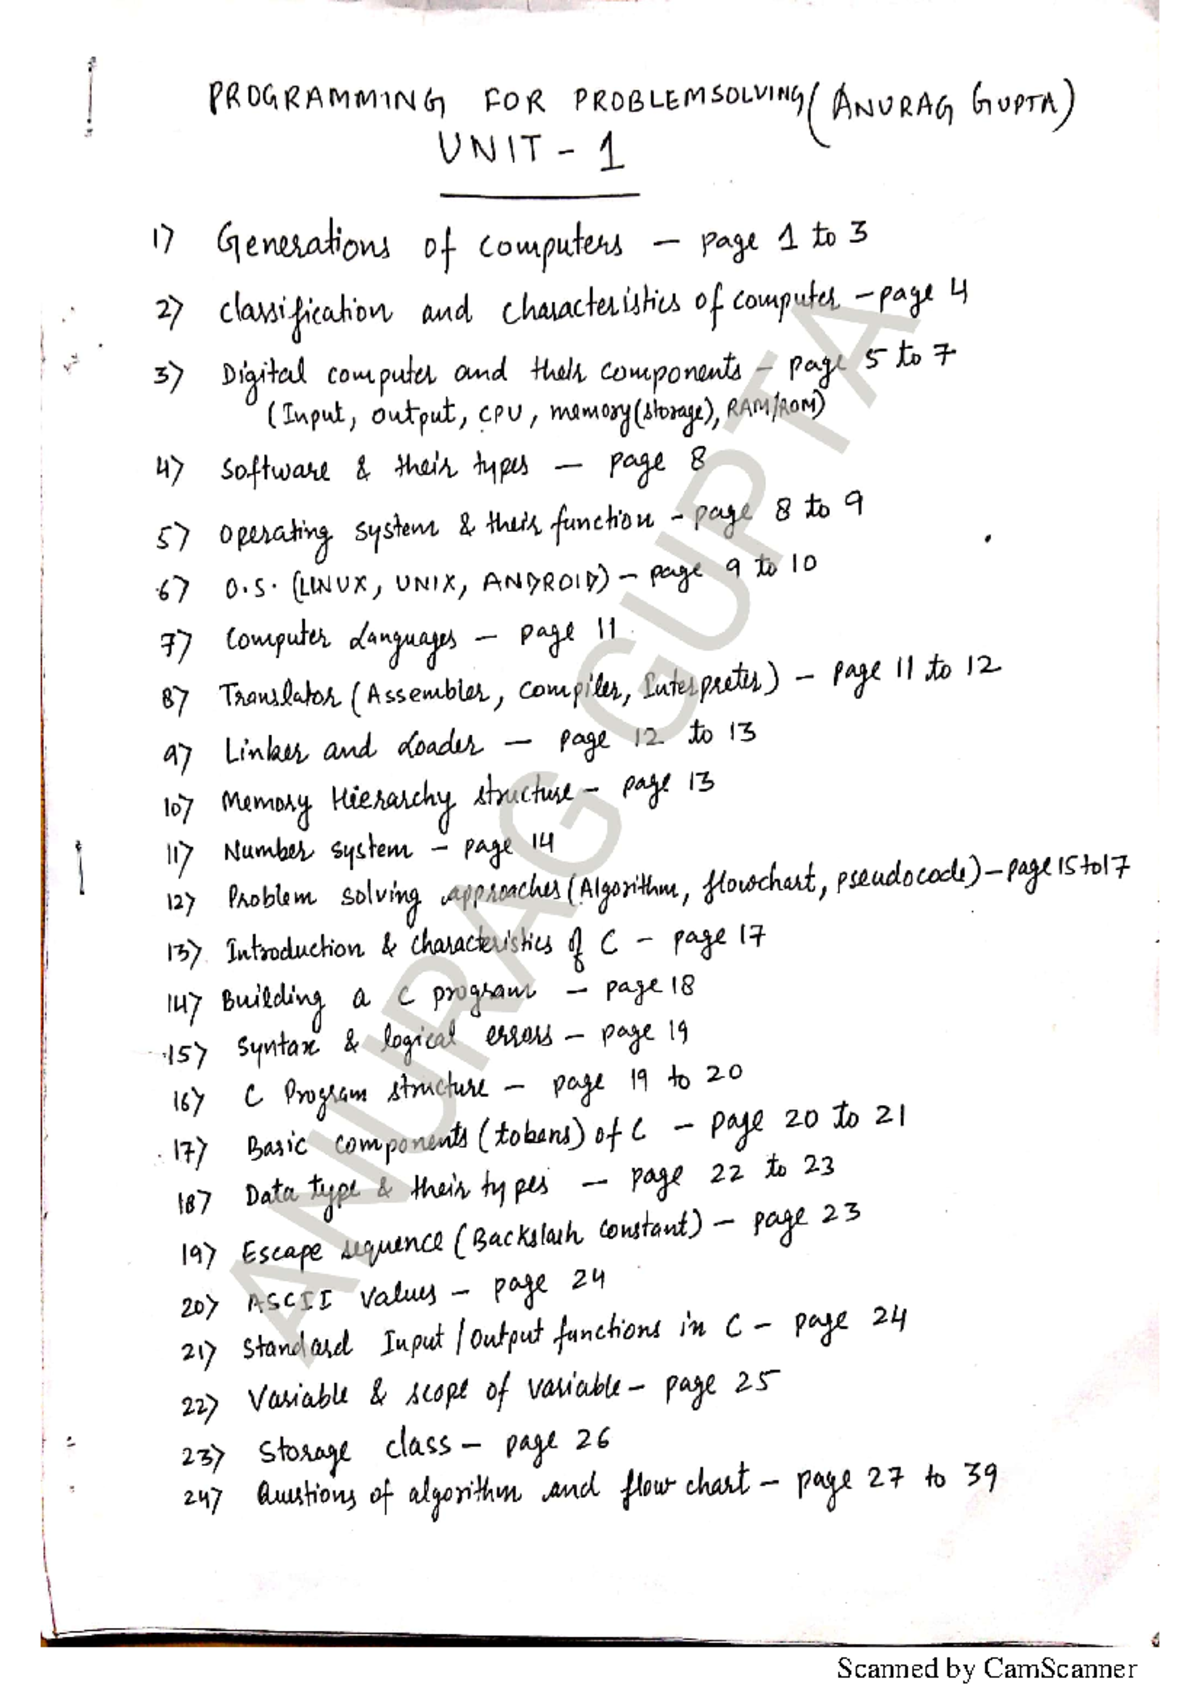 PROGRAMMING FOR PROBLEMSOLVING (ANURAG GUPTA)
UNIT - 1
1) Generations of computers — page 1 to 3
2) classification and characteristics of computer - page 4
3) Digital computer and their components - page 5 to 7
(Input, output, CPU, memory(storage), RAM/ROM)
4) Software & their types — page 8
5) Operating system & their function - page 8 to 9
6) O.S. (LINUX, UNIX, ANDROID) - page 9 to 10
7) Computer Languages - page 11
8) Translator (Assembler, Compiler, Interpreter) - page 11 to 12
9) Linker and Loader — page 12 to 13
10) Memory Hierarchy structure - page 13
11) Number system - page 14
12) Problem solving approaches (Algorithm, flowchart, pseudocode) - page 15 to 17
13) Introduction & characteristics of C - page 17
14) Building a C program — page 18
15) Syntax & logical errors - page 19
16) C Program structure - page 19 to 20
17) Basic components (tokens) of C - page 20 to 21
18) Data type & their types — page 22 to 23
19) Escape sequence (Backslash constant) - page 23
20) ASCII values - page 24
21) Standard Input / Output functions in C - page 24
22) Variable & scope of variable - page 25
23) Storage class - page 26
24) Questions of algorithm and flow chart - page 27 to 39
ANURAG GUPTA
Scanned by CamScanner